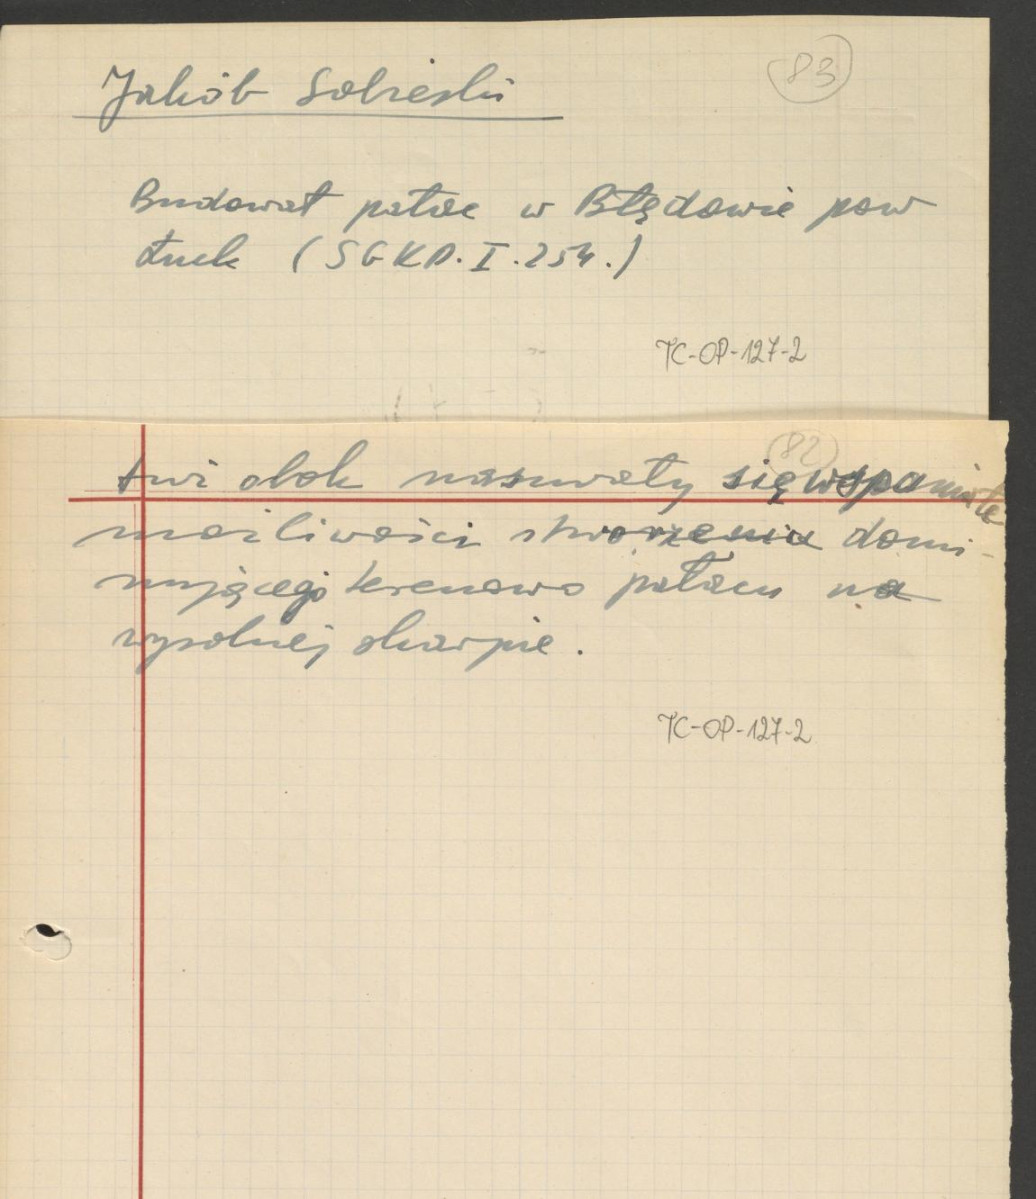 83
Jakób Sobieski
Budował pałac w Błędowie pow
Łuck (SGKP.I.254.)
TC-OP-127-2
82
tuż obok nasuwały się wspaniałe
możliwości stworzenia domi-
nującego terenowo pałacu na
wysokiej skarpie.
TC-OP-127-2